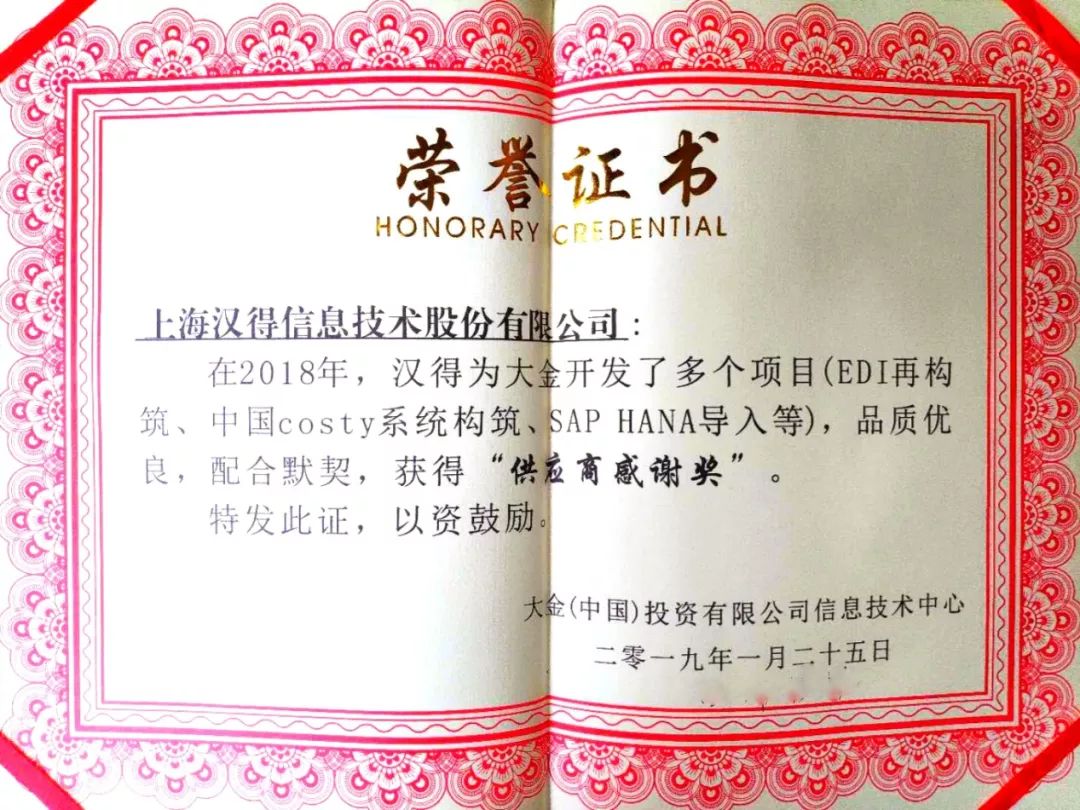 荣誉证书
HONORARY CREDENTIAL
上海汉得信息技术股份有限公司：
在2018年，汉得为大金开发了多个项目(EDI再构
筑、中国costy系统构筑、SAP HANA导入等)，品质优
良，配合默契，获得“供应商感谢奖”。
特发此证，以资鼓励。
大金(中国)投资有限公司信息技术中心
二零一九年一月二十五日